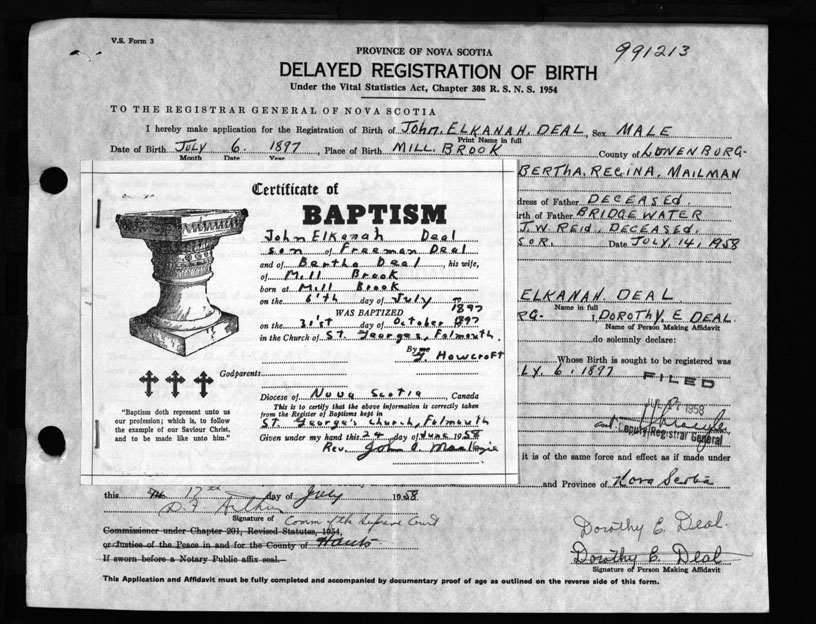 V.S. Form 3
991213
PROVINCE OF NOVA SCOTIA
DELAYED REGISTRATION OF BIRTH
Under the Vital Statistics Act, Chapter 308 R. S. N. S. 1954
TO THE REGISTRAR GENERAL OF NOVA SCOTIA
I hereby make application for the Registration of Birth of JOHN. ELKANAH. DEAL, Sex MALE
Print Name in full
Date of Birth JULY 6. 1897, Place of Birth MILL. BROOK County of LUNENBURG-
Month Date Year
BERTHA. REGINA. MAILMAN
dress of Father DECEASED.
irth of Father BRIDGEWATER
J. W. REID, DECEASED.
SOR. Date JULY. 14, 1958
ELKANAH. DEAL
Name in full
RG- I, DOROTHY. E. DEAL.
Name of Person Making Affidavit
do solemnly declare:
Whose Birth is sought to be registered was
LY. 6. 1897
FILED
1958
Deputy Registrar General
it is of the same force and effect as if made under
and Province of Nova Scotia
Certificate of
BAPTISM
John Elkanah Deal
son of Freeman Deal
and of Bertha Deal, his wife,
of Mill Brook
born at Mill Brook
on the 6'th day of July 1897
WAS BAPTIZED
on the 31'st day of October 1897
in the Church of St. Georges, Falmouth.
By me J. Howcroft
Godparents
Diocese of Nova Scotia, Canada
This is to certify that the above information is correctly taken
from the Register of Baptisms kept in
St. George's Church, Falmouth
Given under my hand this 29 day of June 1958
Rev. John
"Baptism doth represent unto us
our profession; which is, to follow
the example of our Saviour Christ,
and to be made like unto him."
this 17th day of July 1958
Signature of Comm of the Supreme Court
Commissioner under Chapter 201, Revised Statutes, 1954,
or Justice of the Peace in and for the County of Hants
If sworn before a Notary Public affix seal.
Dorothy E. Deal.
Dorothy E. Deal
Signature of Person Making Affidavit
This Application and Affidavit must be fully completed and accompanied by documentary proof of age as outlined on the reverse side of this form.